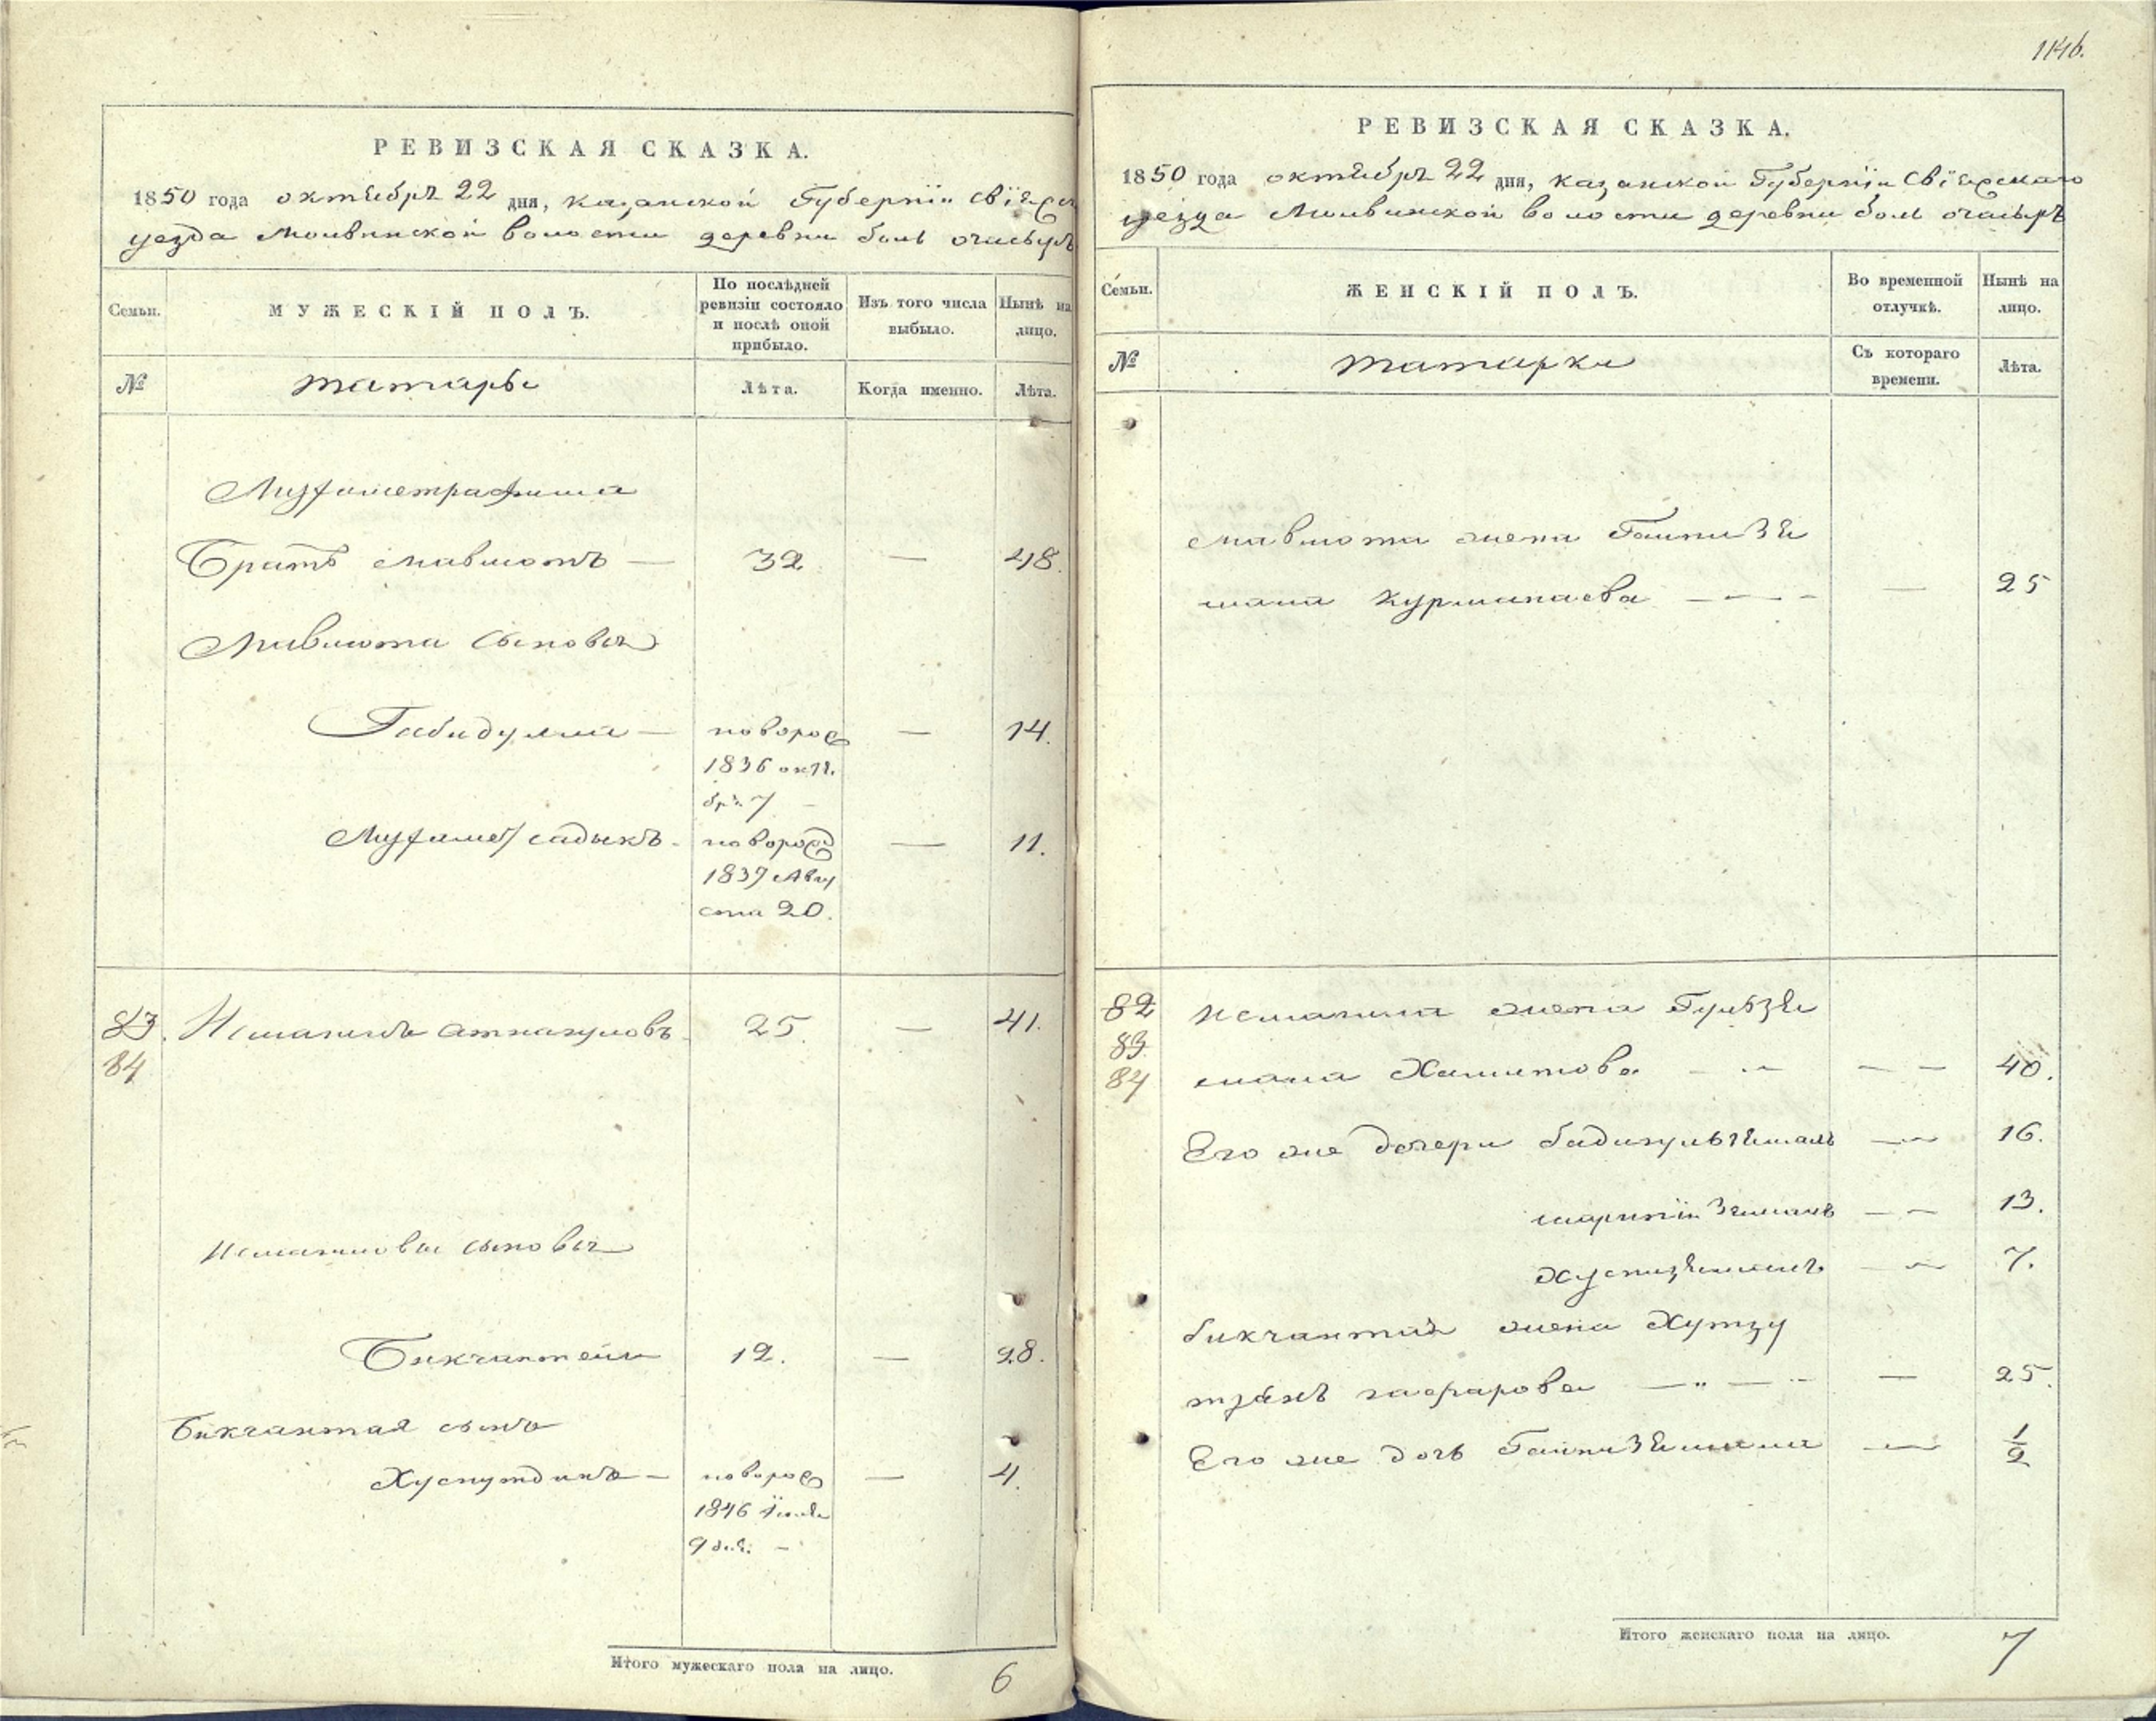 1146.
РЕВИЗСКАЯ СКАЗКА.
1850 года октября 22 дня, казанской Губернїи свїяжск
уезда Молвинской волости деревни боль очасыръ
Семьи.
МУЖЕСКІЙ ПОЛЪ.
По послѣдней ревизіи состояло и послѣ оной прибыло.
Изъ того числа выбыло.
Нынѣ на лицо.
№
татары
Лѣта.
Когда именно.
Лѣта.
Мухаметрафика
Братъ мавлютъ — 32 — 48.
Мавлюта сыновья
Габидулла — новорож — 14.
1836 октя
бря 7 —
Мухамет садыкъ — новорожд — 11.
1837 Авгу
ста 20.
83. Исмагилъ атнагуловъ 25. — 41.
84
исмагиловы сыновья
Бикчантай 12. — 28.
Бикчантая сынъ
Хуснутдинъ — новорож — 4.
1846 Їюля
9 дня. —
Итого мужескаго пола на лицо. 6
РЕВИЗСКАЯ СКАЗКА.
1850 года октября 22 дня, казанской Губернїи свїяжскаго
уезда Молвинской волости деревни боль очасыръ
Семьи.
ЖЕНСКІЙ ПОЛЪ.
Во временной отлучкѣ.
Нынѣ на лицо.
№
татарки
Съ котораго времени.
Лѣта.
мавлюта жена Гайнизя
мала курманаева — — 25
82 исмагила жена Гульзя
83
84 мала Хамитова — — 40.
Его же дочери бадигульзямаль — 16.
шарпїи Зямаль — 13.
Хуснизямаль — 7.
бикчантая жена Хутзу
тзянъ гафарова — — 25.
Его же дочь Гайнизямала — 1/2
Итого женскаго пола на лицо. 7